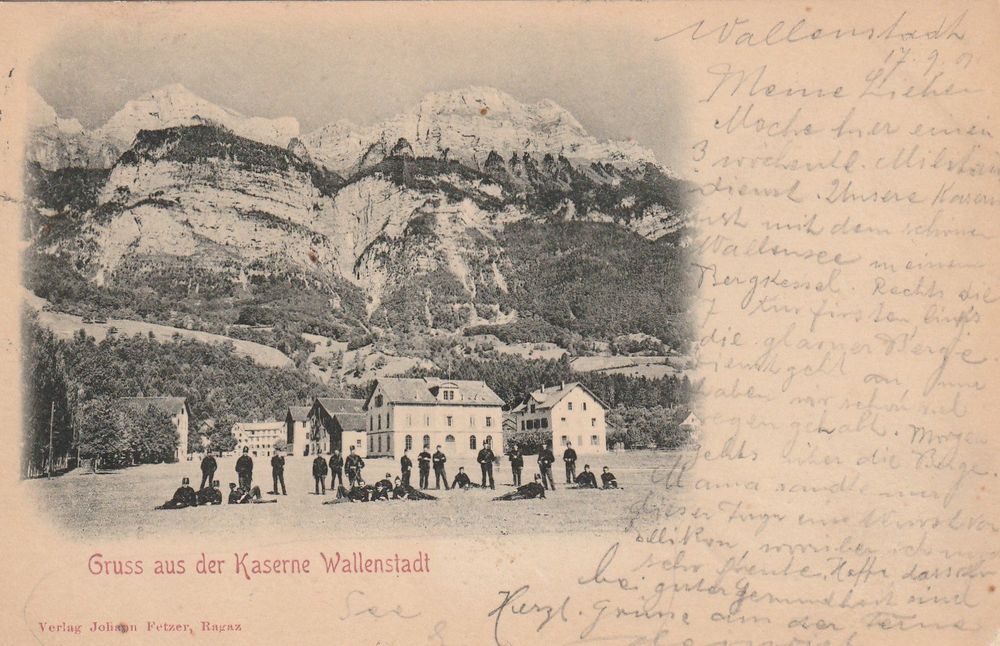 Wallenstadt
17. 9. 01
Meine Lieben
Mache hier einen
3 wöchentl. Militär
dienst. Unsere Kasern
ist mit dem schönen
Wallensee in einem
Bergkessel. Rechts die
7 Kurfirsten links
die glarner Berge
haben wir schon viel
Regen gehabt. Morgen
gehts über die Berge.
Mama sandte mir
dieser Tage eine Wurst von
worüber ich mich
sehr freute. Hoffe dass
bei guter Gesundheit sind
Herzl. Grüsse aus der Ferne
Gruss aus der Kaserne Wallenstadt
See
Verlag Johann Fetzer, Ragaz